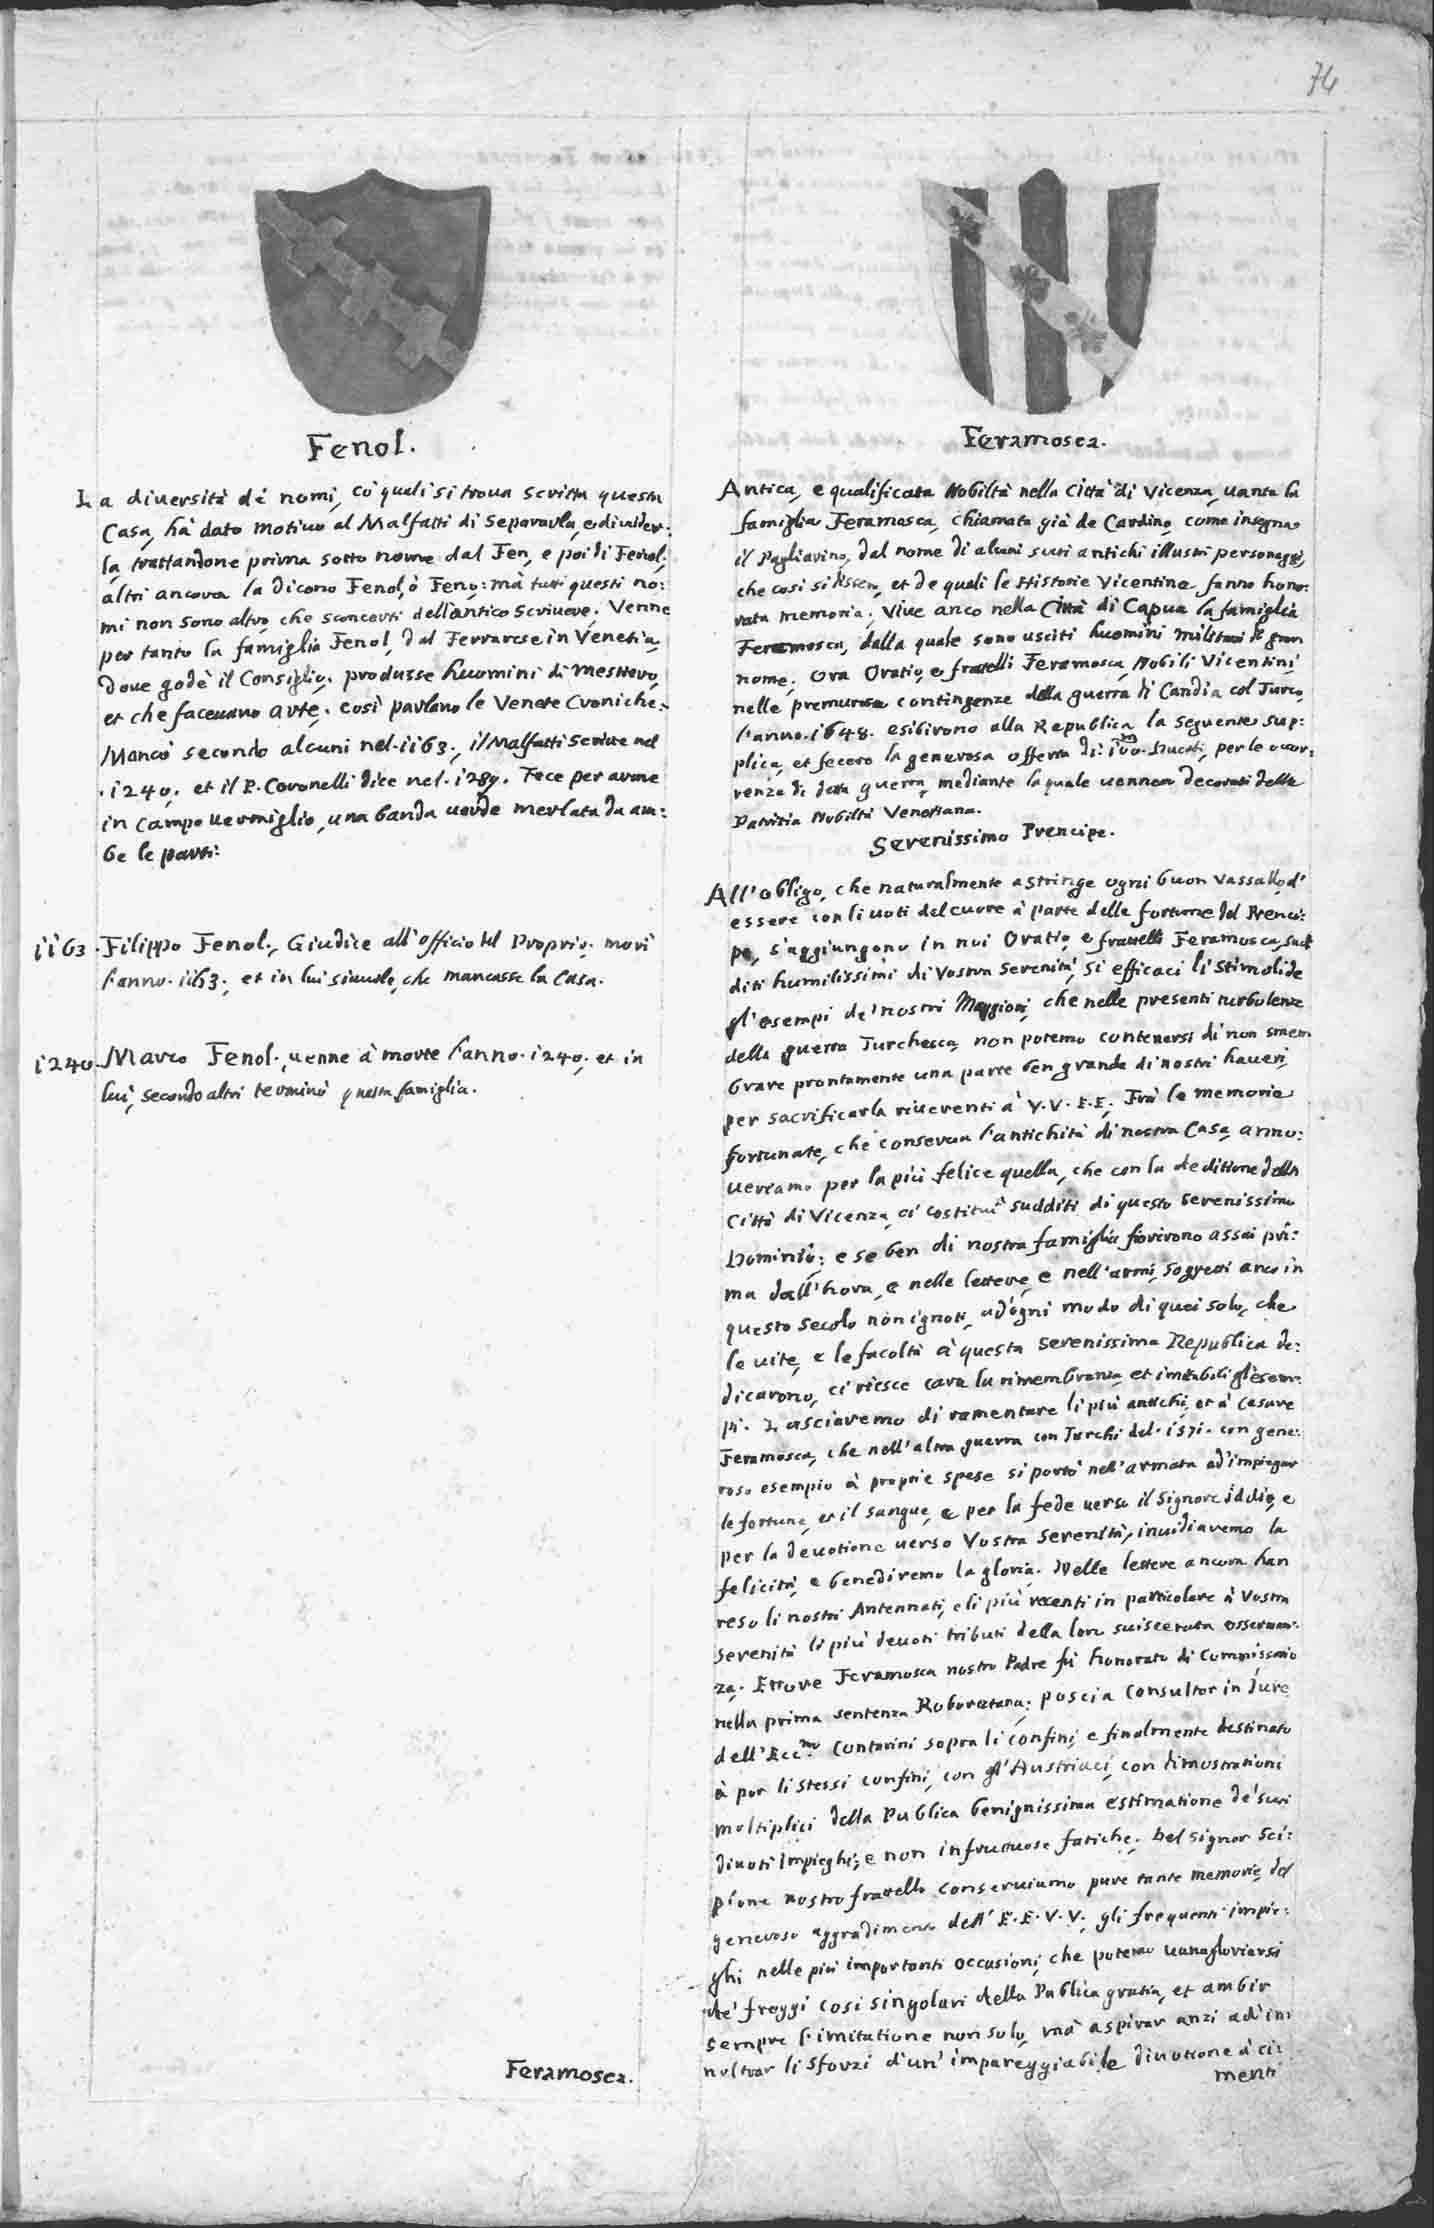 74
Fenol.
La diversità dè nomi, co' quali si troua scritta questa
Casa, hà dato motiuo al Malfatti di separarla, e diuider:
la, trattandone prima sotto nome dal Fen, e poi di Fenol;
altri ancora la dicono Fenol, ò Feno: mà tutti questi no:
mi non sono altro, che sconcerti dell'antico scriuere. Venne
per tanto la famiglia Fenol, dal Ferrarese in Venetia,
doue godè il Consiglio. produsse huomini di mestiero,
et che faceuano arte. così parlano le Venete Croniche.
Mancò secondo alcuni nel. 1163., il Malfatti scriue nel
. 1240. et il P. Coronelli dice nel. 1289. Fece per arme
in campo vermiglio, una banda verde merlata da am:
be le parti:
1163. Filippo Fenol., Giudice all'officio del Proprio. morì
l'anno. 1163., et in lui si vuole, che mancasse la Casa.
1240. Marco Fenol., uenne à morte l'anno. 1240. et in
lui, secondo altri terminò questa famiglia.
Feramosca.
Feramosca.
Antica, e qualificata Nobiltà nella Città di Vicenza, uanta la
famiglia Feramosca, chiamata già de Cardino, come insegna
il Pagliarino, dal nome di alcuni suoi antichi illustri personaggi,
che così si dissero, et de quali le Historie Vicentine fanno hono:
rata memoria. Viue anco nella Città di Capua la famiglia
Feramosca, dalla quale sono usciti huomini militari de gran
nome. Ora Oratio, e fratelli Feramosca, Nobili Vicentini,
nelle premurose contingenze della guerra di Candia col Turco,
l'anno. 1648. esibirono alla Republica la seguente sup:
plica, et fecero la generosa offerta di: 100m. Ducati, per le occor:
renze di detta guerra, mediante la quale uennero decorati della
Patritia Nobiltà Venetiana.
Serenissimo Prencipe.
All'obligo, che naturalmente astringe ogni buon Vassallo, d'
essere con li uoti del cuore à parte delle fortune del Prenci:
pe, s'aggiungono in noi Oratio, e fratelli Feramosca, sud
diti humilissimi di Vostra Serenità, sì efficaci li stimoli de
gl'esempi de' nostri Maggiori, che nelle presenti turbolenze
della guerra Turchesca, non potemo contenersi di non smem
brare prontamente una parte ben grande di nostri haueri,
per sacrificarla riuerenti à V. V. E. E. Frà le memorie
fortunate, che conserua l'antichità di nostra Casa, anno:
ueriamo per la più felice quella, che con la deditione della
Città di Vicenza, ci costituì sudditi di questo Serenissimo
Dominio: e se ben di nostra famiglia fiorirono assai pri:
ma dall'hora, e nelle lettere, e nell'armi, soggetti anco in
questo secolo non ignoti, ad'ogni modo di quei solo, che
le uite, e le facoltà à questa Serenissima Republica de:
dicarono, ci riesce cara la rimembranza, et imitabili gl'esem:
pi. Lasciaremo di ramentare li più antichi, et à Cesare
Feramosca, che nell'altra guerra con Turchi del. 1571. con gene:
roso esempio à proprie spese si portò nell'armata ad'impiegar
le fortune, et il sangue, e per la fede uerso il Signore Iddio, e
per la deuotione uerso Vostra Serenità, inuidiaremo la
felicità, e benediremo la gloria. Nelle lettere ancora han
reso li nostri Antennati, e li più recenti in particolare à Vostra
Serenità li più deuoti tributi della loro suiscerata osseruan:
za. Ettore Feramosca nostro Padre fù honorato di Commissario
nella prima sentenza Roboretana; poscia Consultor in Jure
dell'Eccmo. Contarini sopra li confini, e finalmente destinato
à por li stessi confini, con gl'Austriaci, con dimostrationi
moltiplici della Publica benignissima estimatione de' suoi
diuoti Impieghi, e non infruttuose fatiche. Del Signor Sci:
pione nostro fratello conseruiamo pure tante memorie, del
generoso aggradimento dell'E. E. V. V. gli frequenti impie:
ghi nelle più importanti occasioni, che potemo uanagloriarsi
de' freggi così singolari della Publica gratia, et ambir
sempre l'imitatione non solo, mà aspirar anzi ad'in
noltrar li sforzi d'un' impareggiabile diuotione à ci:
menti